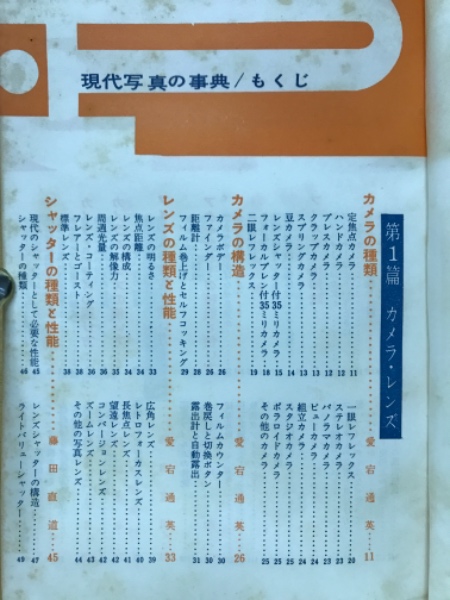 現代写真の事典/もくじ
第1篇 カメラ・レンズ
カメラの種類……愛宕通英…11
定焦点カメラ……11
ハンドカメラ……12
プレスカメラ……12
クラップカメラ……13
スプリングカメラ……13
豆カメラ……14
レンズシャッター付35ミリカメラ……15
フォーカルプレン付35ミリカメラ……18
二眼レフレックス……19
一眼レフレックス……20
ステレオカメラ……23
パノラマカメラ……23
ビューカメラ……24
組立カメラ……24
スタジオカメラ……25
ポラロイドカメラ……25
その他のカメラ……25
カメラの構造……愛宕通英…26
カメラボデー……26
ファインダー……26
距離計……28
フィルム巻上げとセルフコッキング……29
フィルムカウンター……30
巻戻しと切換ボタン……30
露出計と自動露出……31
レンズの種類と性能……愛宕通英…33
レンズの明るさ……33
焦点距離……34
レンズの構成……34
レンズの解像力……35
周辺光量……36
レンズ・コーティング……36
フレアーとゴースト……38
標準レンズ……38
広角レンズ……39
レトロフォーカスレンズ……40
長焦点レンズ……41
望遠レンズ……42
コンバージョンレンズ……42
ズームレンズ……43
その他の写真レンズ……44
シャッターの種類と性能……藤田直道…45
現代のシャッターとして必要な性能……45
シャッターの種類……46
レンズシャッターの構造……47
ライトバリューシャッター……49